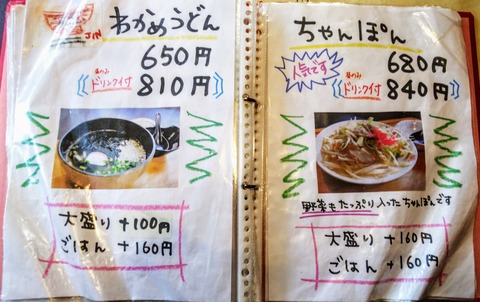 わかめうどん
650円
昼のみ
ドリンク付 810円
大盛り +100円
ごはん +160円
ちゃんぽん
人気です
680円
昼のみ
ドリンク付 840円
野菜もたっぷり入ったちゃんぽんです
大盛り +160円
ごはん +160円